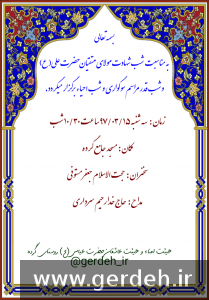 بسمه تعالی
به مناسبت شب شهادت مولای متقیان حضرت علی (ع)
و شب قدر مراسم سوگواری و شب احیاء برگزار میگردد.
زمان: سه شنبه ۹۷/۰۳/۱۵ ساعت ۱۰/۳۰ شب
مکان: مسجد جامع گرده
سخنران: حجت الاسلام جعفر مستوفی
مداح: حاج خدارحیم سرداری
هیئت امناء و هیئت عاشقان حضرت عباس (ع) روستای گرده
@gerdeh_ir
www.gerdeh.ir